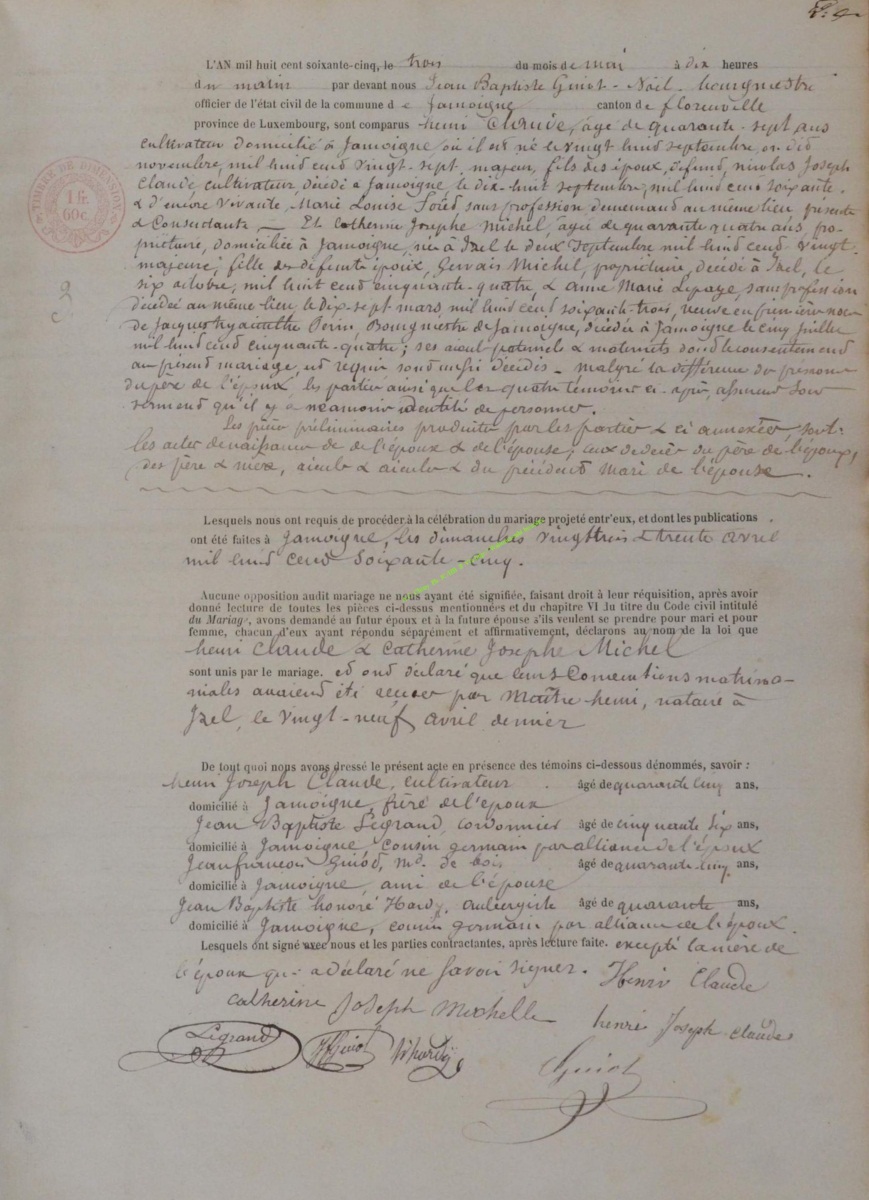 L'AN mil huit cent soixante-cinq, le trois du mois de mai à dix heures
du matin par devant nous Jean Baptiste Guiot-Noël, bourgmestre
officier de l'état civil de la commune de Jamoigne canton de florenville
province de Luxembourg, sont comparus henri Claude, âgé de quarante-sept ans
cultivateur domicilié à Jamoigne où il est né le vingt huit septembre
novembre, mil huit cent vingt-sept, majeur, fils des époux, défunt, nicolas Joseph
Claude cultivateur décédé à Jamoigne, le dix-huit septembre, mil huit cent soixante.
& d'encore vivante, Marie Louise sans profession, demeurant au même lieu présente
& Consentante — Et Catherine Josephe Michel, âgée de quarante quatre ans, pro-
priétaire, domiciliée à Jamoigne, née à Izel le deux Septembre mil huit cent vingt
majeure; fille des défunts époux, Gervais Michel, propriétaire, décédé à Izel, le
six octobre, mil huit cent cinquante-quatre, & anne Marie Lepage, sans profession
décédée au même lieu le dix-sept mars, mil huit cent soixante-trois, veuve en première
de Jacques hyacinthe Perin, Bourgmestre de Jamoigne, décédé à Jamoigne le cinq juillet
mil huit cent cinquante-quatre; ses aieux paternels & maternels dont le consentement
au présent mariage, est requis sont aussi décédés – malgré la différence de prénoms
du père de l'époux les parties ainsi que les quatre témoins ci-après, assurent sous
serment qu'il y a néamoins identité de personnes.
Les pièces préliminaires produites par les parties & ci annexées, sont:
les actes de naissance de de l'époux & de l'épouse; ceux de décès du père de l'époux,
des père & mère, aieuls & aieules & du précédent mari de l'épouse.
Lesquels nous ont requis de procéder à la célébration du mariage projeté entr'eux, et dont les publications
ont été faites à Jamoigne, les dimanches vingt trois & trente avril
mil huit cent soixante-cinq.
Aucune opposition audit mariage ne nous ayant été signifiée, faisant droit à leur réquisition, après avoir
donné lecture de toutes les pièces ci-dessus mentionnées et du chapitre VI du titre du Code civil intitulé
du Mariage, avons demandé au futur époux et à la future épouse s'ils veulent se prendre pour mari et pour
femme, chacun d'eux ayant répondu séparément et affirmativement, déclarons au nom de la loi que
henri Claude & Catherine Josephe Michel
sont unis par le mariage. et ont déclaré que leurs Conventions matrimo-
niales avaient été reçues par Maître henri, notaire à
Izel, le vingt-neuf avril dernier
De tout quoi nous avons dressé le présent acte en présence des témoins ci-dessous dénommés, savoir :
henri Joseph Claude, cultivateur âgé de quarante cinq ans,
domicilié à Jamoigne, frère de l'époux
Jean Baptiste Legrand, cordonnier âgé de cinquante six ans,
domicilié à Jamoigne, cousin germain par alliance de l'époux
Jean françois Guiot, md. de bois âgé de quarante-cinq ans,
domicilié à Jamoigne, ami de l'épouse
Jean Baptiste honoré Hardy, aubergiste âgé de quarante ans,
domicilié à Jamoigne, cousin germain par alliance de l'époux.
Lesquels ont signé avec nous et les parties contractantes, après lecture faite. excepté la mère de
l'époux qui a déclaré ne savoir signer. Henri Claude
Catherine Joseph Michelle henri Joseph claude
Legrand JfGuiot hardÿ
Guiot
TIMBRE DE DIMENSION
1 fr.
60c.